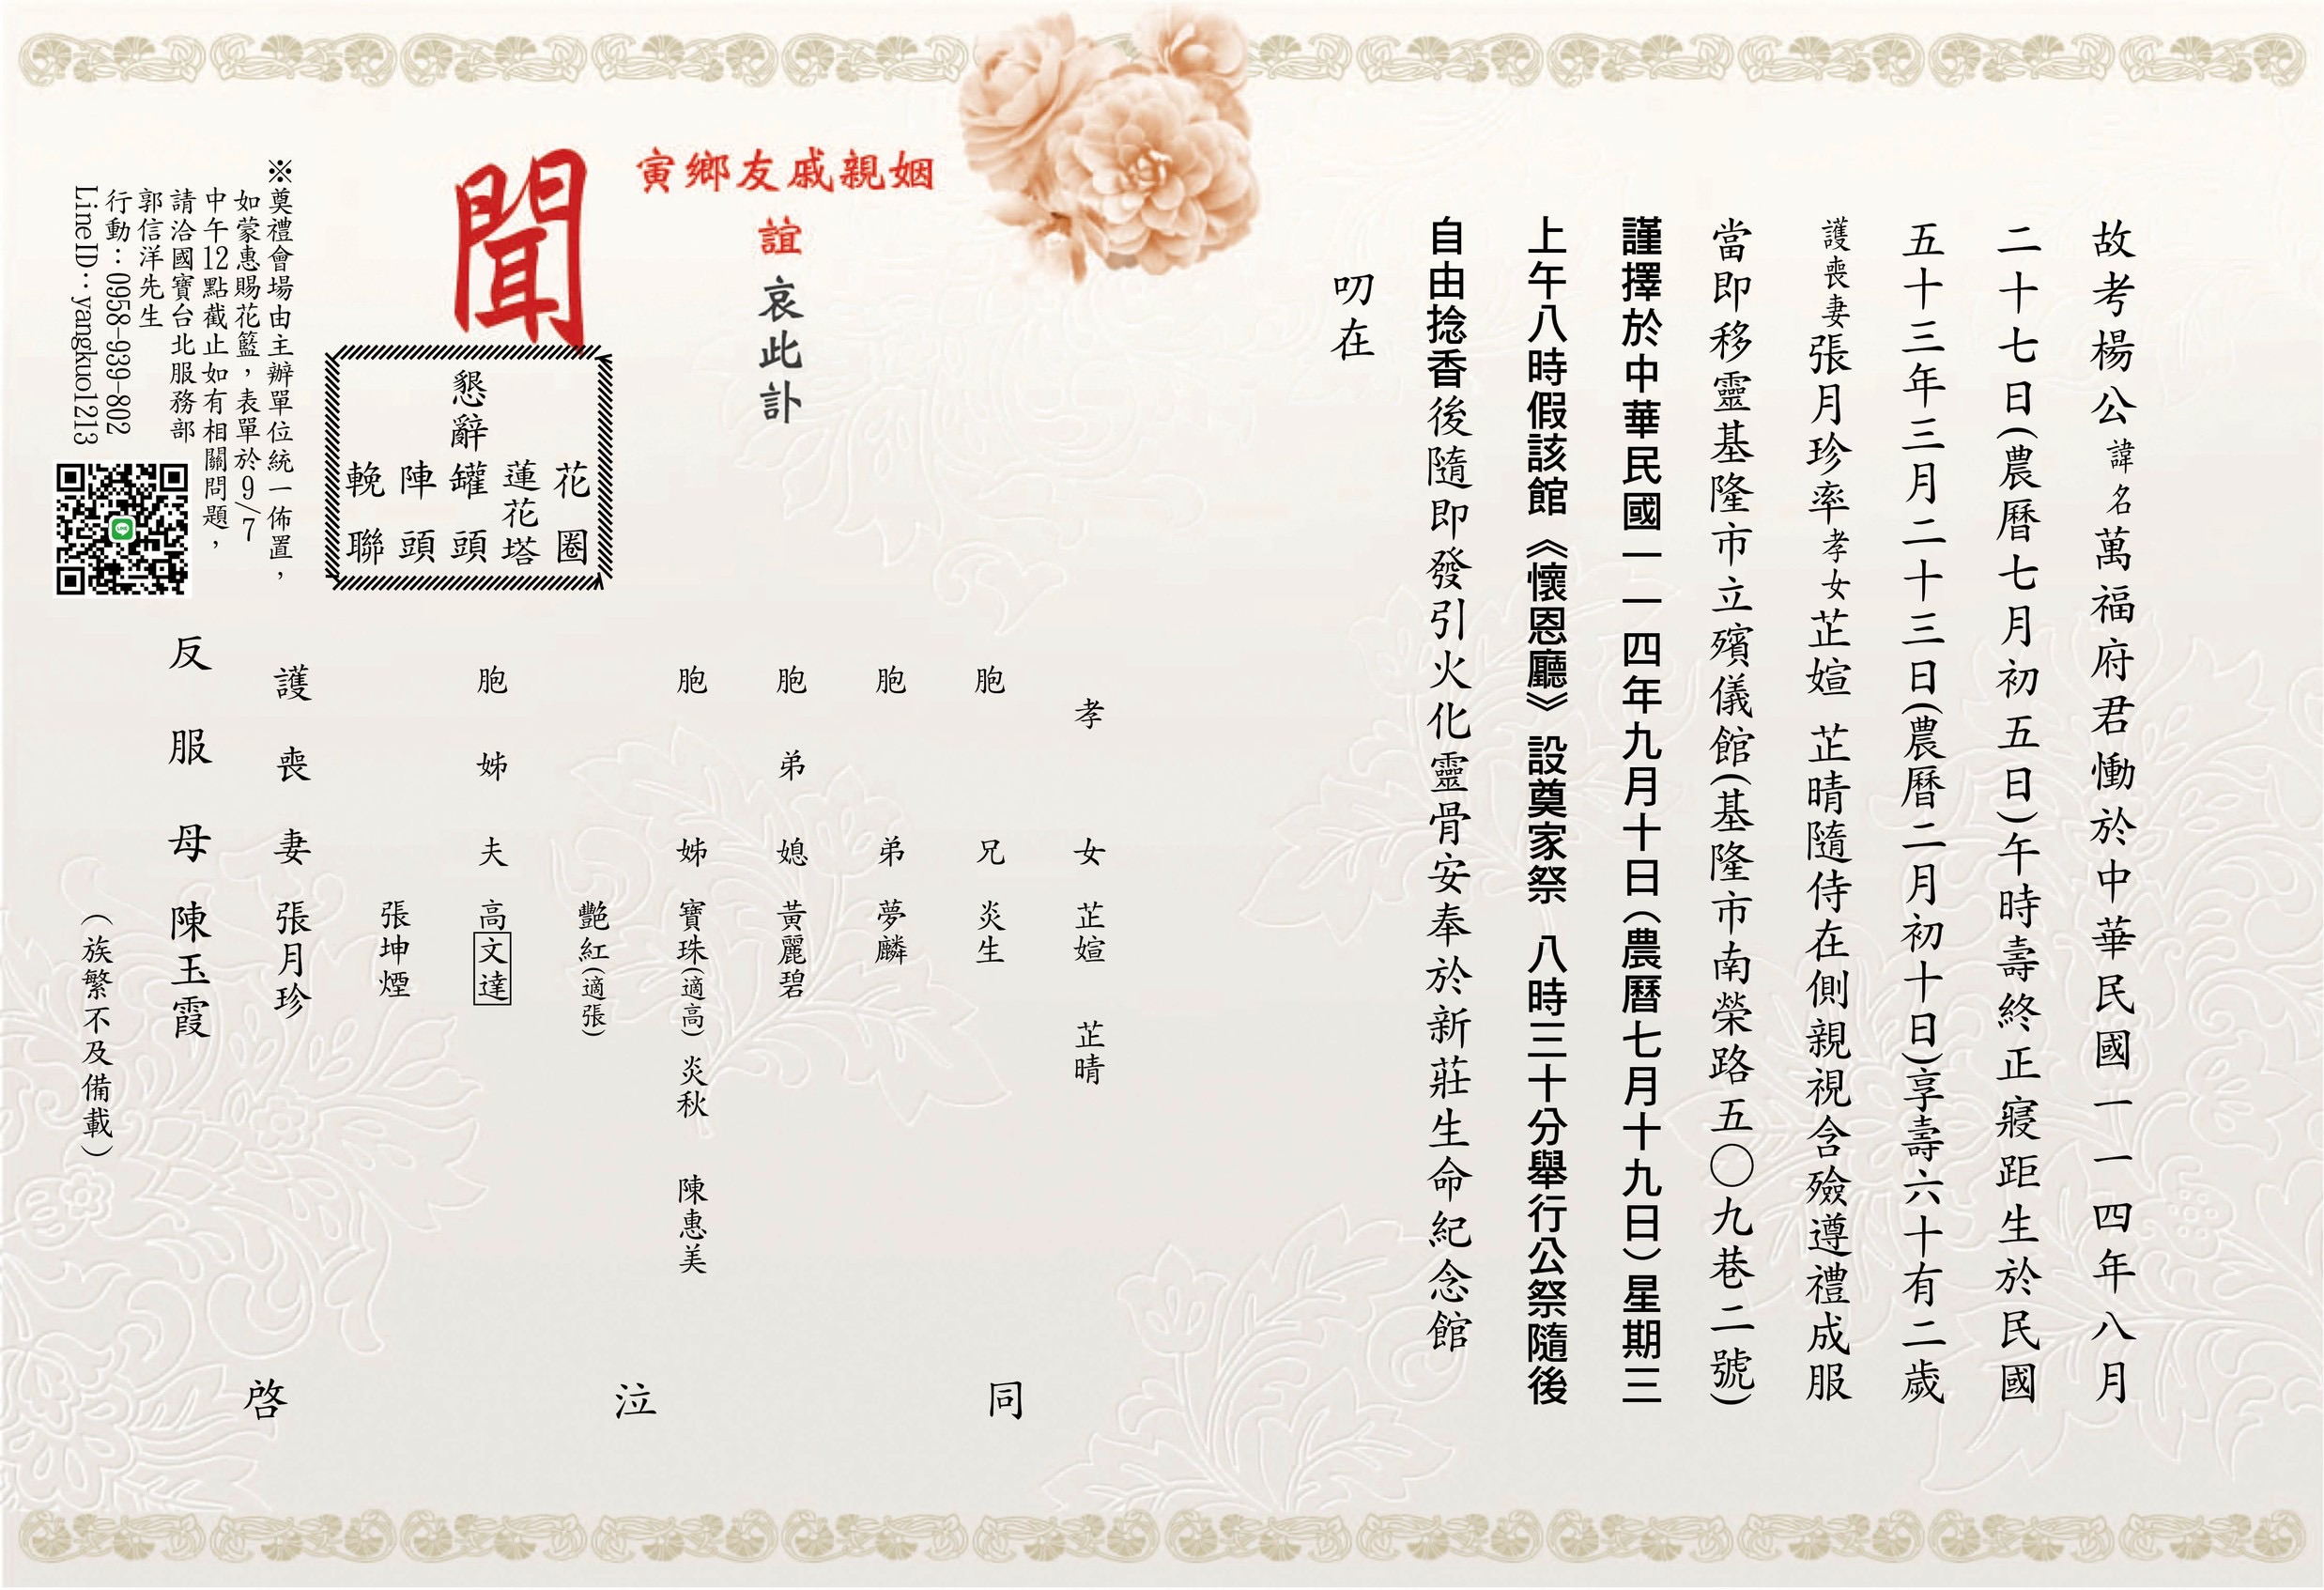 故考楊公諱名萬福府君慟於中華民國一一四年八月
二十七日(農曆七月初五日)午時壽終正寢距生於民國
五十三年三月二十三日(農曆二月初十日)享壽六十有二歲
護喪妻張月珍率孝女芷媗 芷晴隨侍在側親視含殮遵禮成服
當即移靈基隆市立殯儀館(基隆市南榮路五〇九巷二號)
謹擇於中華民國一一四年九月十日(農曆七月十九日)星期三
上午八時假該館《懷恩廳》設奠家祭 八時三十分舉行公祭隨後
自由捻香後隨即發引火化靈骨安奉於新莊生命紀念館
叨在
姻親戚友鄉寅
誼 哀此訃
聞
孝女 芷媗 芷晴
胞兄 炎生
胞弟 夢麟
胞弟媳 黃麗碧
胞姊 寶珠(適高) 炎秋 陳惠美
艷紅(適張)
胞姊夫 高文達
張坤煙
護喪妻 張月珍
反服母 陳玉霞
(族繁不及備載)
同泣啓
懇辭
花圈
蓮花塔
罐頭
陣頭
輓聯
※奠禮會場由主辦單位統一佈置，
如蒙惠賜花籃，表單於9/7
中午12點截止如有相關問題，
請洽國寶台北服務部
郭信洋先生
行動：0958-939-802
LineID：yangkuo1213